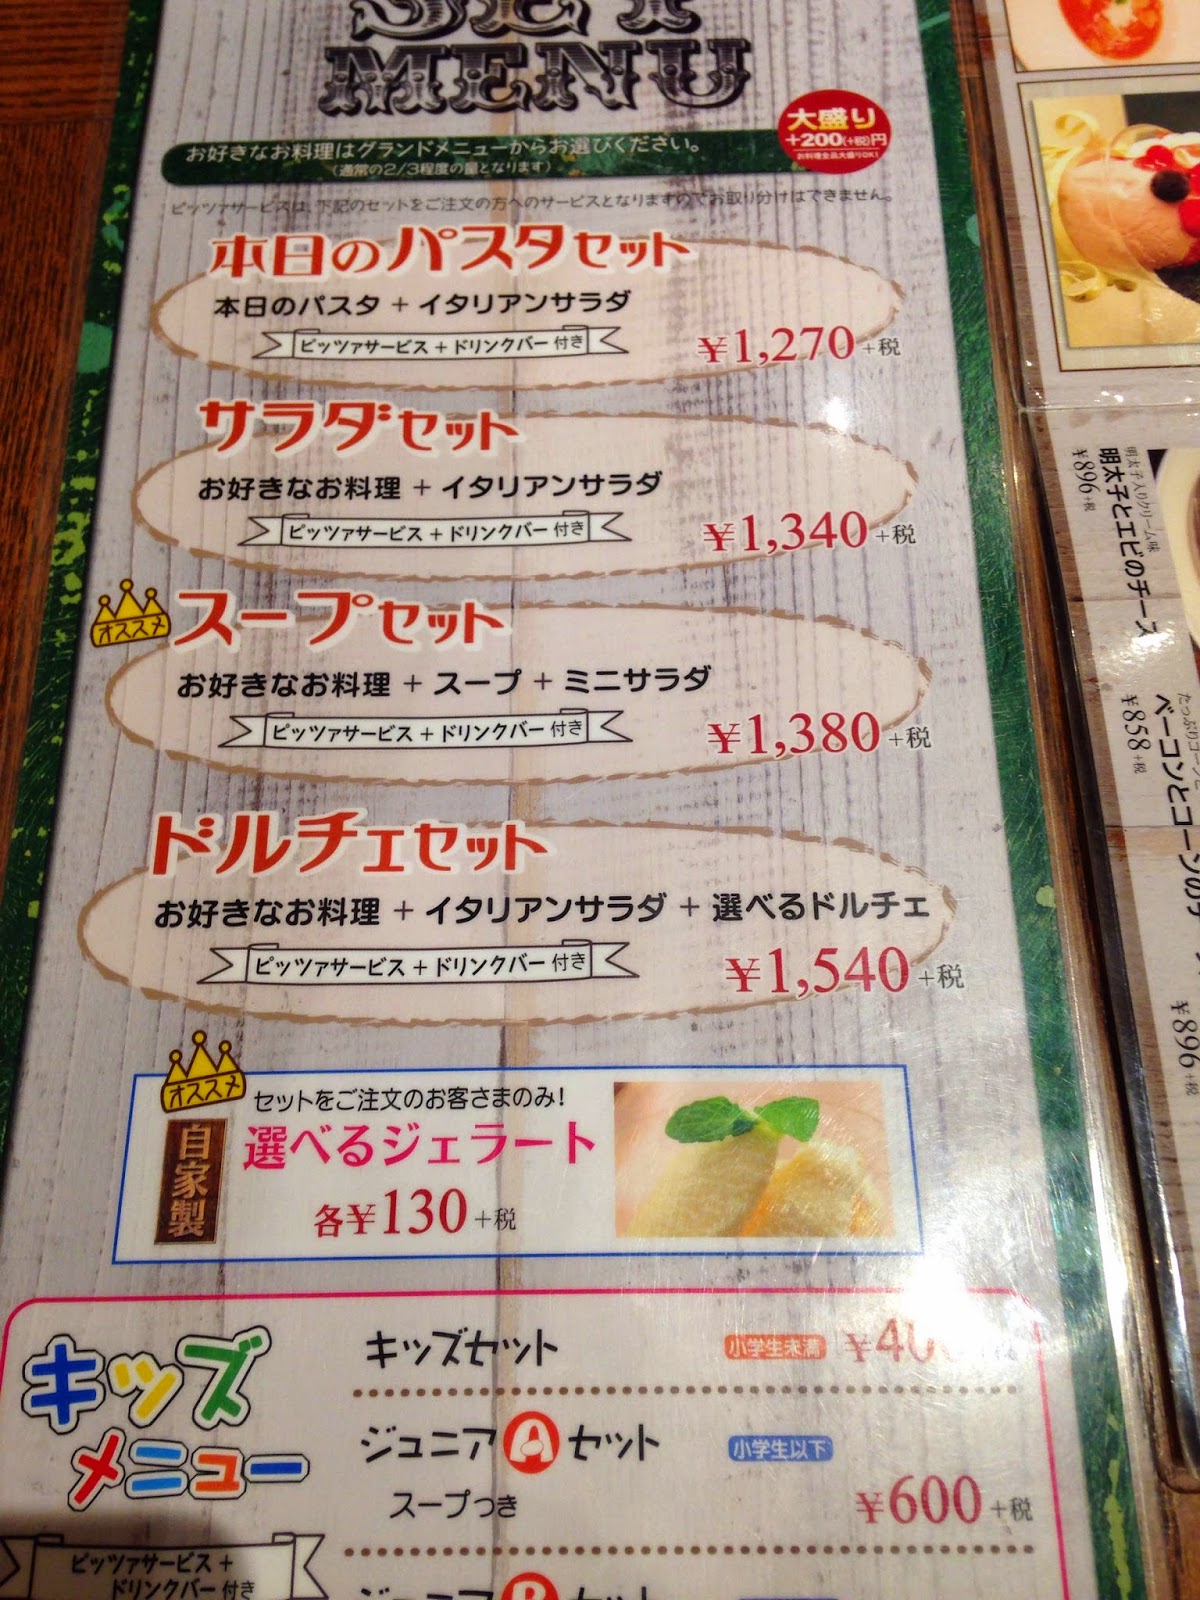 SET
MENU
お好きなお料理はグランドメニューからお選びください。
(通常の2/3程度の量となります)
大盛り
+200(+税)円
お料理全品大盛りOK!
ピッツァサービスは、下記のセットをご注文の方へのサービスとなりますのでお取り分けはできません。
本日のパスタセット
本日のパスタ + イタリアンサラダ
ピッツァサービス + ドリンクバー 付き
¥1,270 +税
サラダセット
お好きなお料理 + イタリアンサラダ
ピッツァサービス + ドリンクバー 付き
¥1,340 +税
オススメ
スープセット
お好きなお料理 + スープ + ミニサラダ
ピッツァサービス + ドリンクバー 付き
¥1,380 +税
ドルチェセット
お好きなお料理 + イタリアンサラダ + 選べるドルチェ
ピッツァサービス + ドリンクバー 付き
¥1,540 +税
オススメ
セットをご注文のお客さまのみ!
自家製
選べるジェラート
各¥130 +税
キッズ
メニュー
ピッツァサービス +
ドリンクバー 付き
キッズセット
小学生未満
ジュニアAセット
小学生以下
スープつき
¥600 +税
ジュニアBセット
明太子入りクリーム味
明太子とエビのチーズ
¥896 +税
ベーコンとコーンの
¥858 +税
¥896 +税